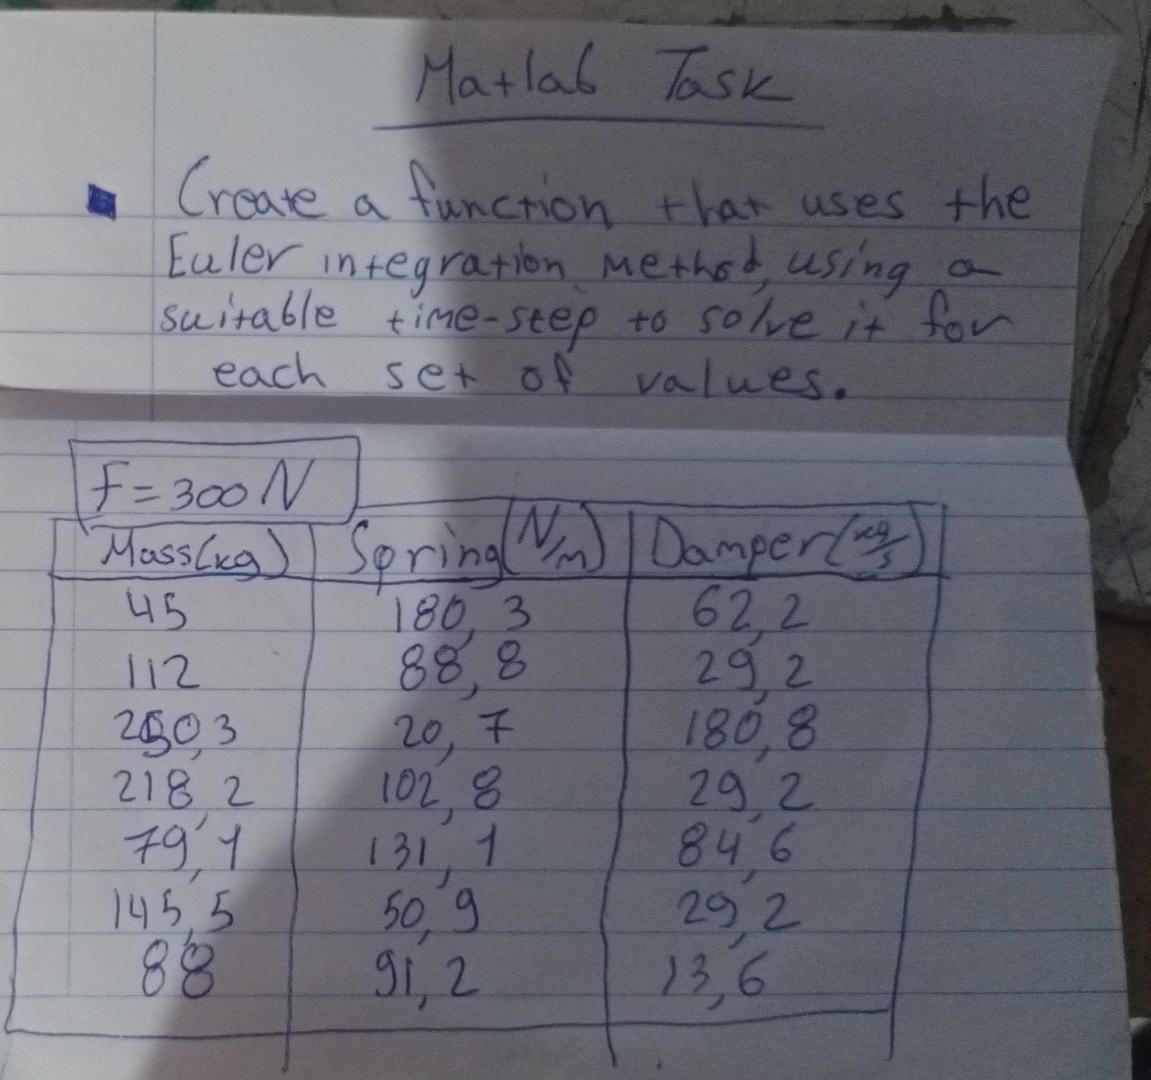 Matlab Task
Create a function that uses the
Euler integration method, using a
suitable time-step to solve it for
each set of values.
F = 300 N
Mass(kg) Spring(N/m) Damper(kg/s)
45 180,3 62,2
112 88,8 29,2
250,3 20,7 180,8
218,2 102,8 29,2
79,1 131,1 84,6
145,5 50,9 29,2
88 91,2 13,6